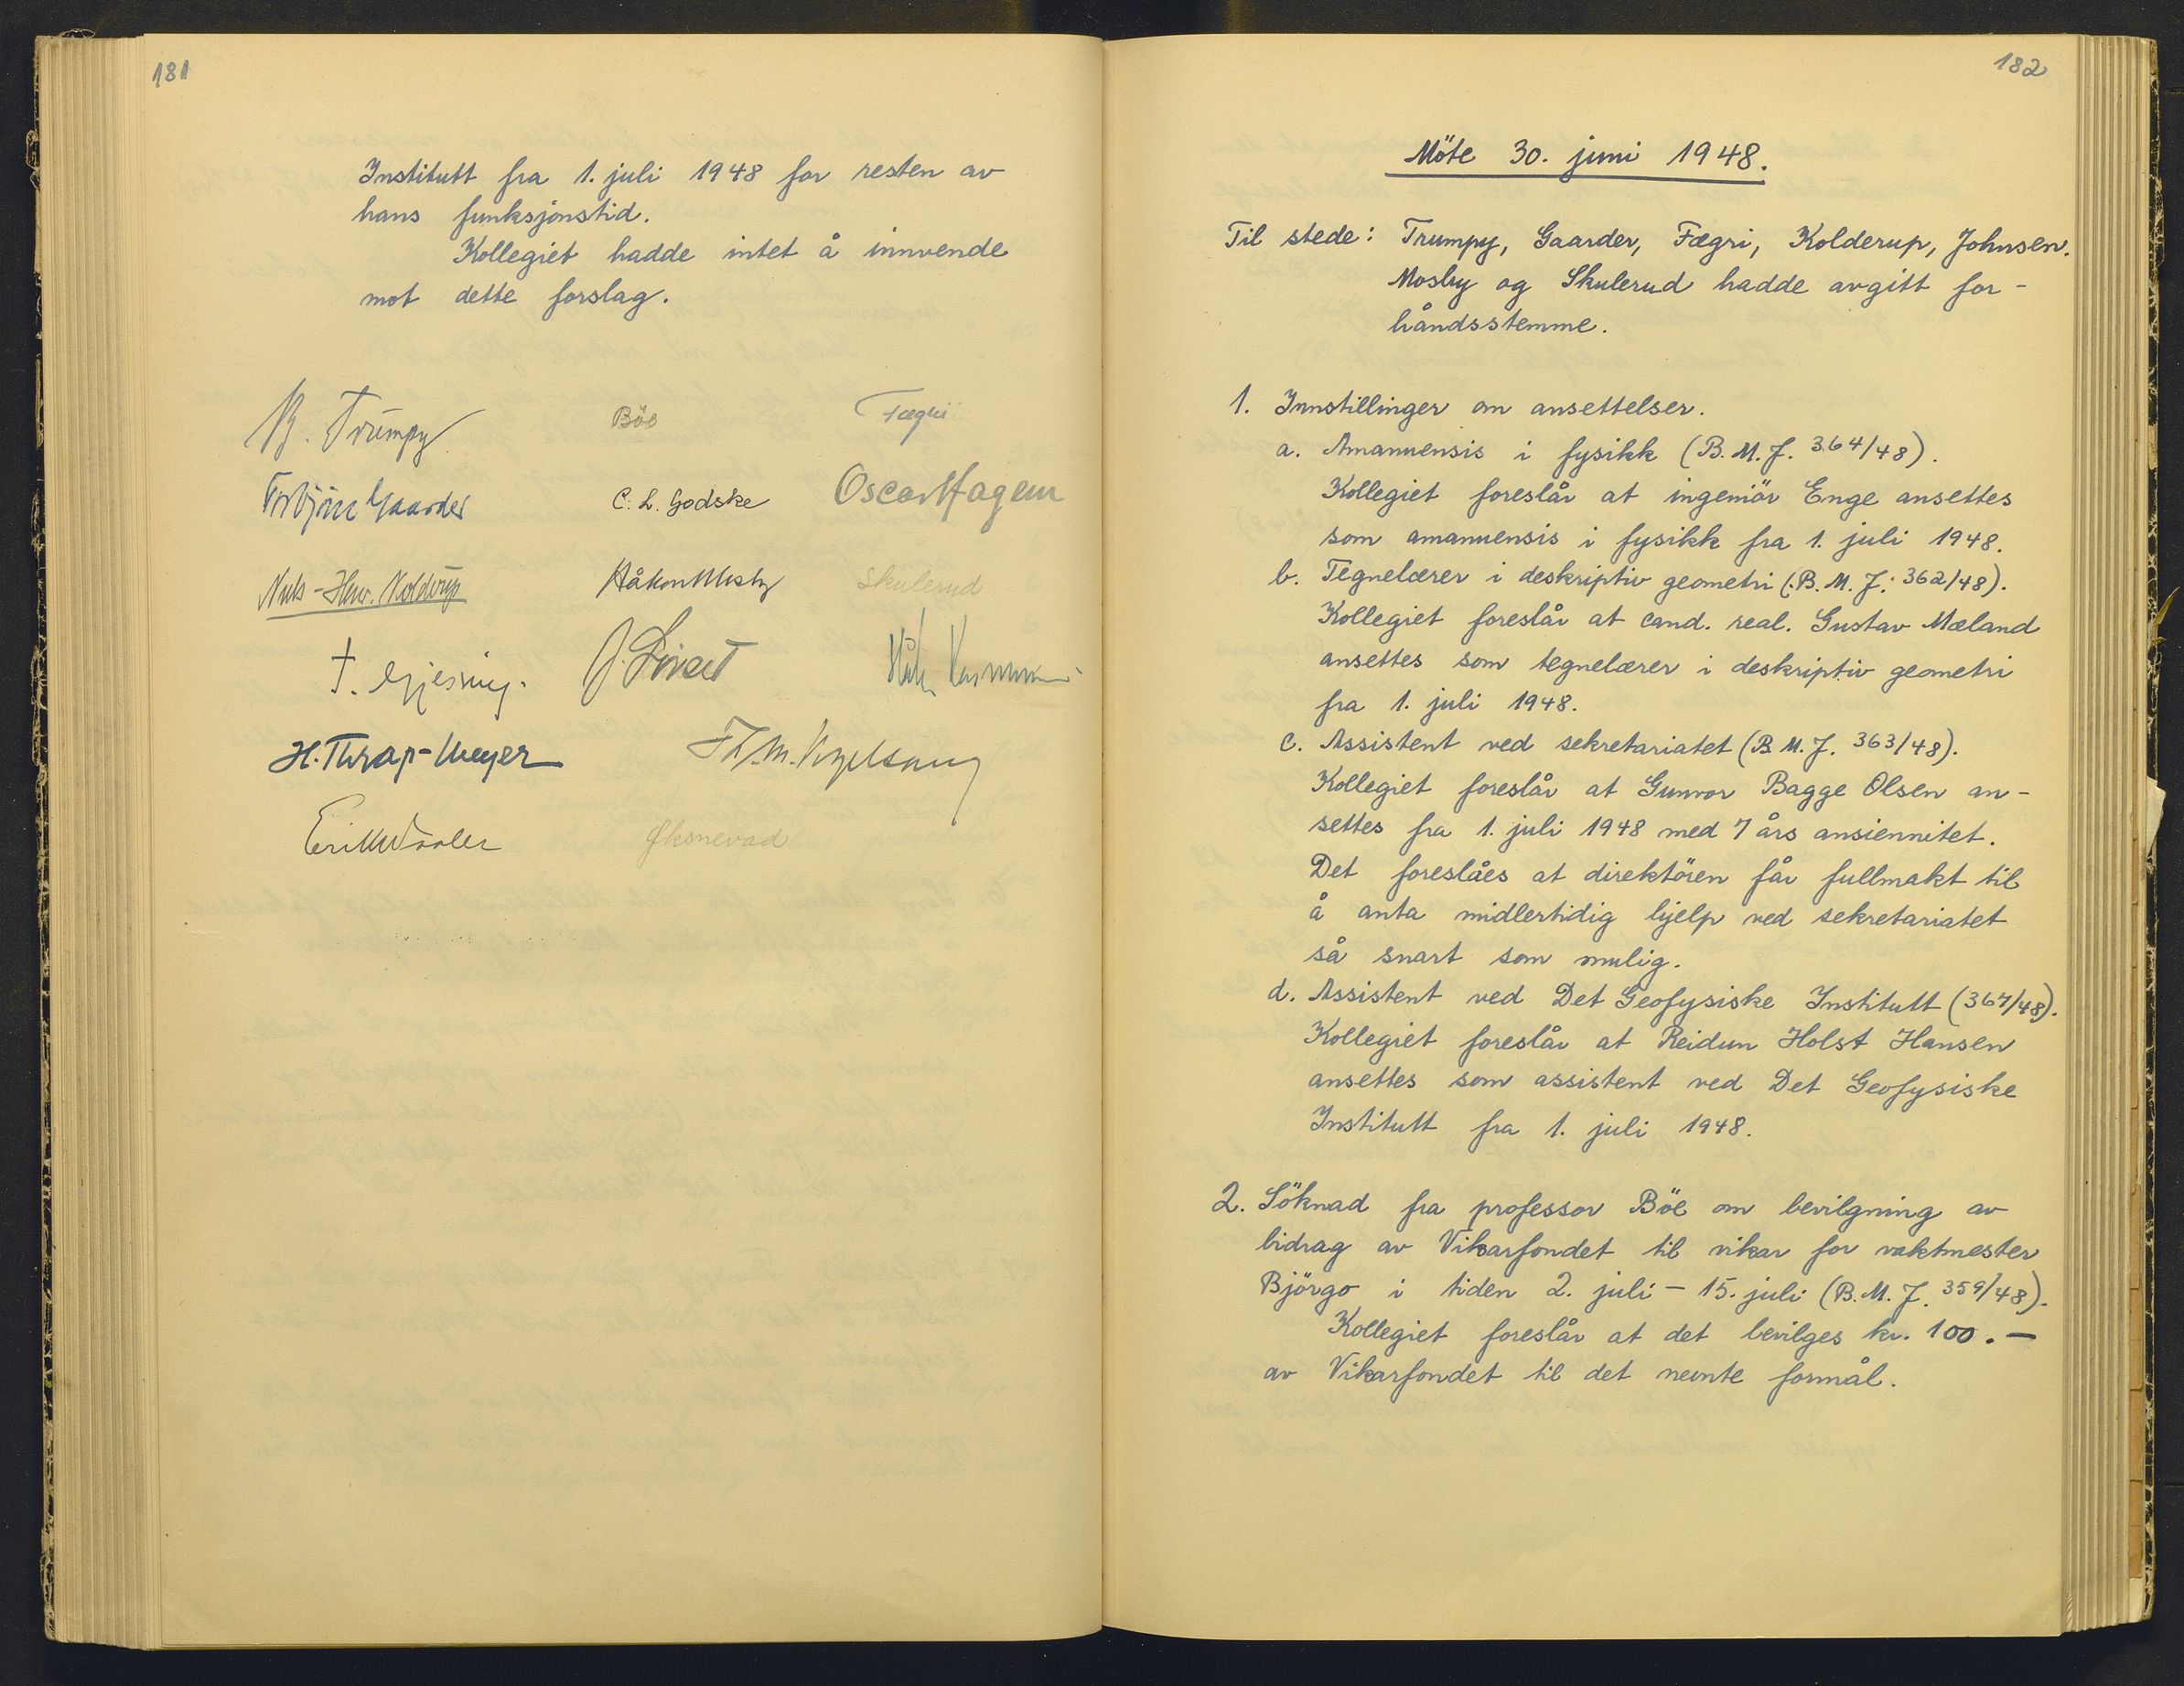 181
Institutt fra 1. juli 1948 for resten av
hans funksjonstid.
Kollegiet hadde intet å innvende
mot dette forslag.
B. Trumpy
Böe
Fægri
Torbjörn Gaarder
C. L. Godske
Oscar Hagem
Niels-Henr. Kolderup
Håkon Mosby
Skulerud
T. Gjessing.
H. Thrap-Meyer
Erik Waaler
Øksnevad
182
Möte 30. juni 1948.
Til stede: Trumpy, Gaarder, Fægri, Kolderup, Johnsen.
Mosby og Skulerud hadde avgitt for-
håndsstemme.
1. Innstillinger om ansettelser.
a. Amanuensis i fysikk (B. M. J. 364/48).
Kollegiet foreslår at ingeniör Enge ansettes
som amanuensis i fysikk fra 1. juli 1948.
b. Tegnelærer i deskriptiv geometri (B. M. J. 362/48).
Kollegiet foreslår at cand. real. Gustav Mæland
ansettes som tegnelærer i deskriptiv geometri
fra 1. juli 1948.
c. Assistent ved sekretariatet (B. M. J. 363/48).
Kollegiet foreslår at Gunvor Bagge Olsen an-
settes fra 1. juli 1948 med 7 års ansiennitet.
Det foreslåes at direktören får fullmakt til
å anta midlertidig hjelp ved sekretariatet
så snart som mulig.
d. Assistent ved Det Geofysiske Institutt (367/48).
Kollegiet foreslår at Reidun Holst Hansen
ansettes som assistent ved Det Geofysiske
Institutt fra 1. juli 1948.
2. Söknad fra professor Böe om bevilgning av
bidrag av Vikarfondet til vikar for vaktmester
Björgo i tiden 2. juli - 15. juli (B. M. J. 359/48).
Kollegiet foreslår at det bevilges kr. 100.-
av Vikarfondet til det nevnte formål.